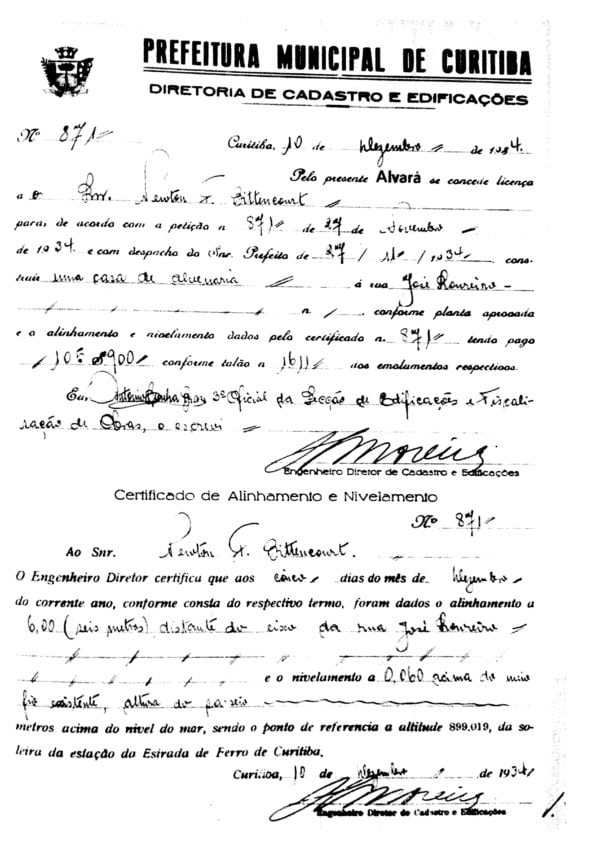 PREFEITURA MUNICIPAL DE CURITIBA
DIRETORIA DE CADASTRO E EDIFICAÇÕES
Nº 871
Curitiba, 10 de Dezembro de 1934.
Pelo presente Alvará se concede licença
a o Snr. Newton F. Bittencourt
para, de acordo com a petição n 871 de 27 de Novembro
de 1934 e com despacho do Snr. Prefeito de 27 / 11 / 1934 cons-
truir uma casa de alvenaria á rua José Loureiro
n / conforme planta aprovada
e o alinhamento e nivelamento dados pelo certificado n. 871 tendo pago
conforme talão n 1611 dos emolumentos respectivos.
Eu, 3º Oficial da Secção de Edificações e Fiscali-
zação de Obras, o escrevi
Moreira
Engenheiro Diretor de Cadastro e Edificações
Certificado de Alinhamento e Nivelamento
Nº 871
Ao Snr. Newton F. Bittencourt.
O Engenheiro Diretor certifica que aos cinco dias do mês de Dezembro
do corrente ano, conforme consta do respectivo termo, foram dados o alinhamento a
6,00 (seis metros) distante do eixo da rua José Loureiro
e o nivelamento a 0,060 acima do meio
fio existente, altura do passeio
metros acima do nivel do mar, sendo o ponto de referencia a altitude 899.019, da so-
leira da estação da Estrada de Ferro de Curitiba.
Curitiba, 10 de Dezembro de 1934
Moreira
Engenheiro Diretor de Cadastro e Edificações